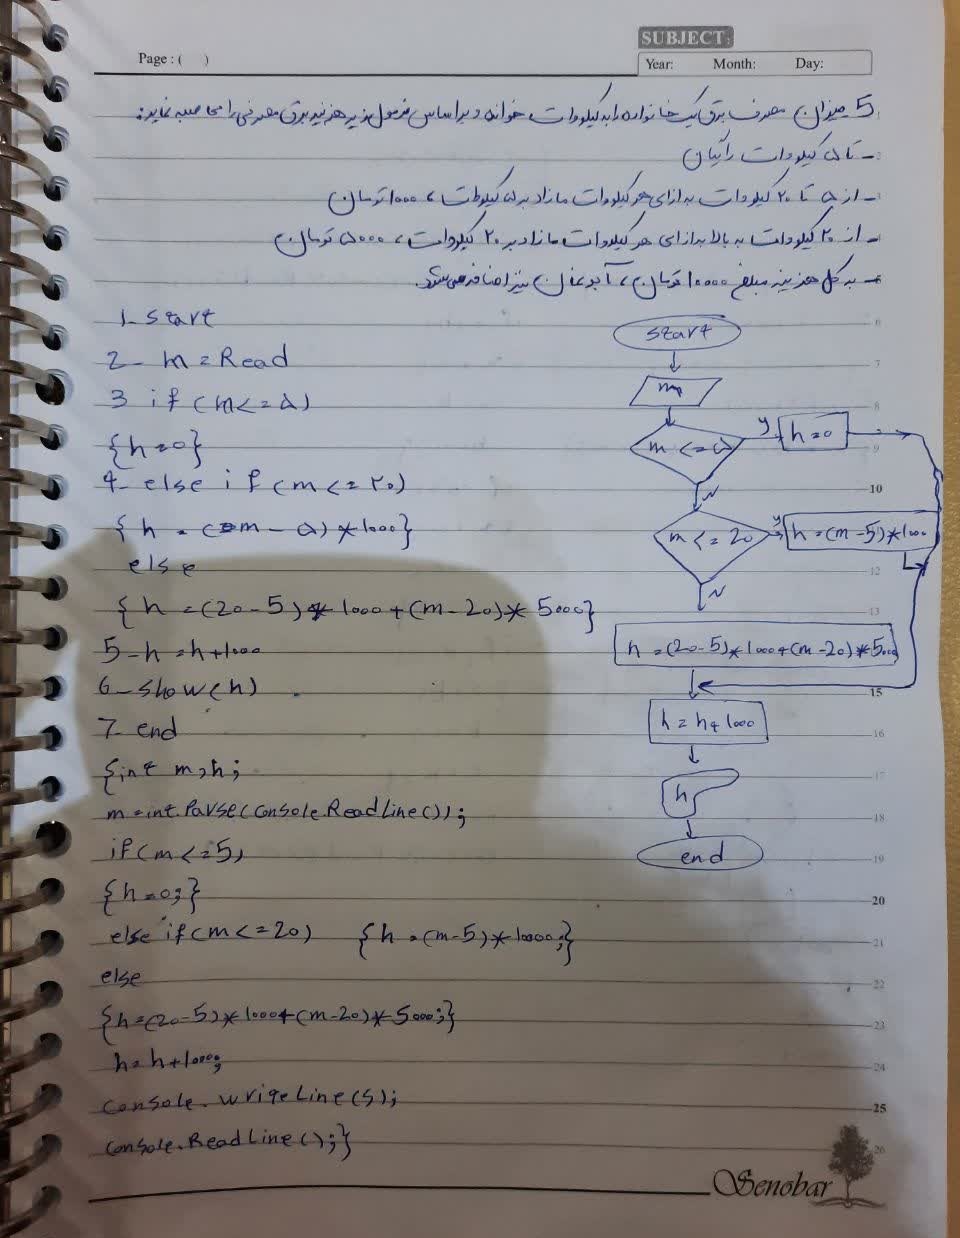 SUBJECT:
Page : ( )
Year: Month: Day:
5_ میزان مصرف برق یک خانواده را به کیلووات خوانده و بر اساس فرمول زیر هزینه برق مصرفی را محاسبه نماید:
_ تا ۵ کیلووات رایگان
_ از ۵ تا ۲۰ کیلووات به ازای هر کیلووات مازاد بر ۵ کیلووات، ۱۰۰۰ تومان
_ از ۲۰ کیلووات به بالا به ازای هر کیلووات مازاد بر ۲۰ کیلووات، ۵۰۰۰ تومان
_ به کل هزینه مبلغ ۱۰۰۰۰ تومان، آبونمان نیز اضافه می‌شود.
1_ start
2_ m = Read
3 if (m <= ۵)
{h = 0}
4_ else if (m <= ۲۰)
{h = (m - ۵) * 1000}
else
{h = (20-5) * 1000 + (m-20) * 5000}
5_ h = h + 1000
6_ show(h)
7_ end
{int m,h;
m = int.Parse(Console.ReadLine());
if (m <= 5)
{h = 0;}
else if (m <= 20) {h = (m-5) * 10000;}
else
{h = (20-5) * 1000 + (m-20) * 5000;}
h = h + 1000;
Console.WriteLine(s);
Console.ReadLine();}
start
m
m <= ۵
y
h = 0
N
m <= 20
y
h = (m-5) * 1000
N
h = (20-5) * 1000 + (m-20) * 5000
h = h + 1000
h
end
6
7
8
9
10
12
13
15
16
17
18
19
20
21
22
23
24
25
26
Senobar